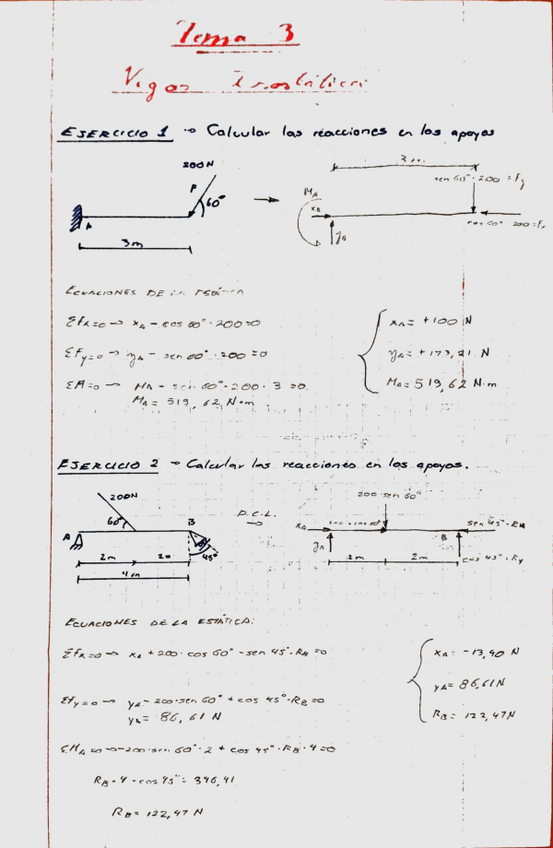 Tema 3
Vigas Isostática
EJERCICIO 1 → Calcular las reacciones en los apoyos
200N
F
60°
A
3m
MA
xA
yA
sen 60°·200 = Fy
ECUACIONES DE LA ESTÁTICA
ΣFx=0 → xA - cos 60°·200=0
ΣFy=0 → yA - sen 60°·200=0
ΣM=0 → MA - sen 60°·200·3=0
MA = 519,62 N·m
xA = +100 N
yA = +173,21 N
MA = 519,62 N·m
EJERCICIO 2 → Calcular las reacciones en los apoyos.
200N
60°
A
B
45°
2m
4m
D.C.L.
200·sen 60°
xA
yA
B
sen 45°·RB
2m
2m
cos 45°·Ry
ECUACIONES DE LA ESTÁTICA:
ΣFx=0 → xA + 200·cos 60° - sen 45°·RB=0
ΣFy=0 → yA - 200·sen 60° + cos 45°·RB=0
yA = 86,61 N
ΣMA=0 → -200·sen 60°·2 + cos 45°·RB·4=0
RB·4·cos 45° = 346,41
RB = 122,47 N
xA = -13,40 N
yA = 86,61 N
RB = 122,47 N